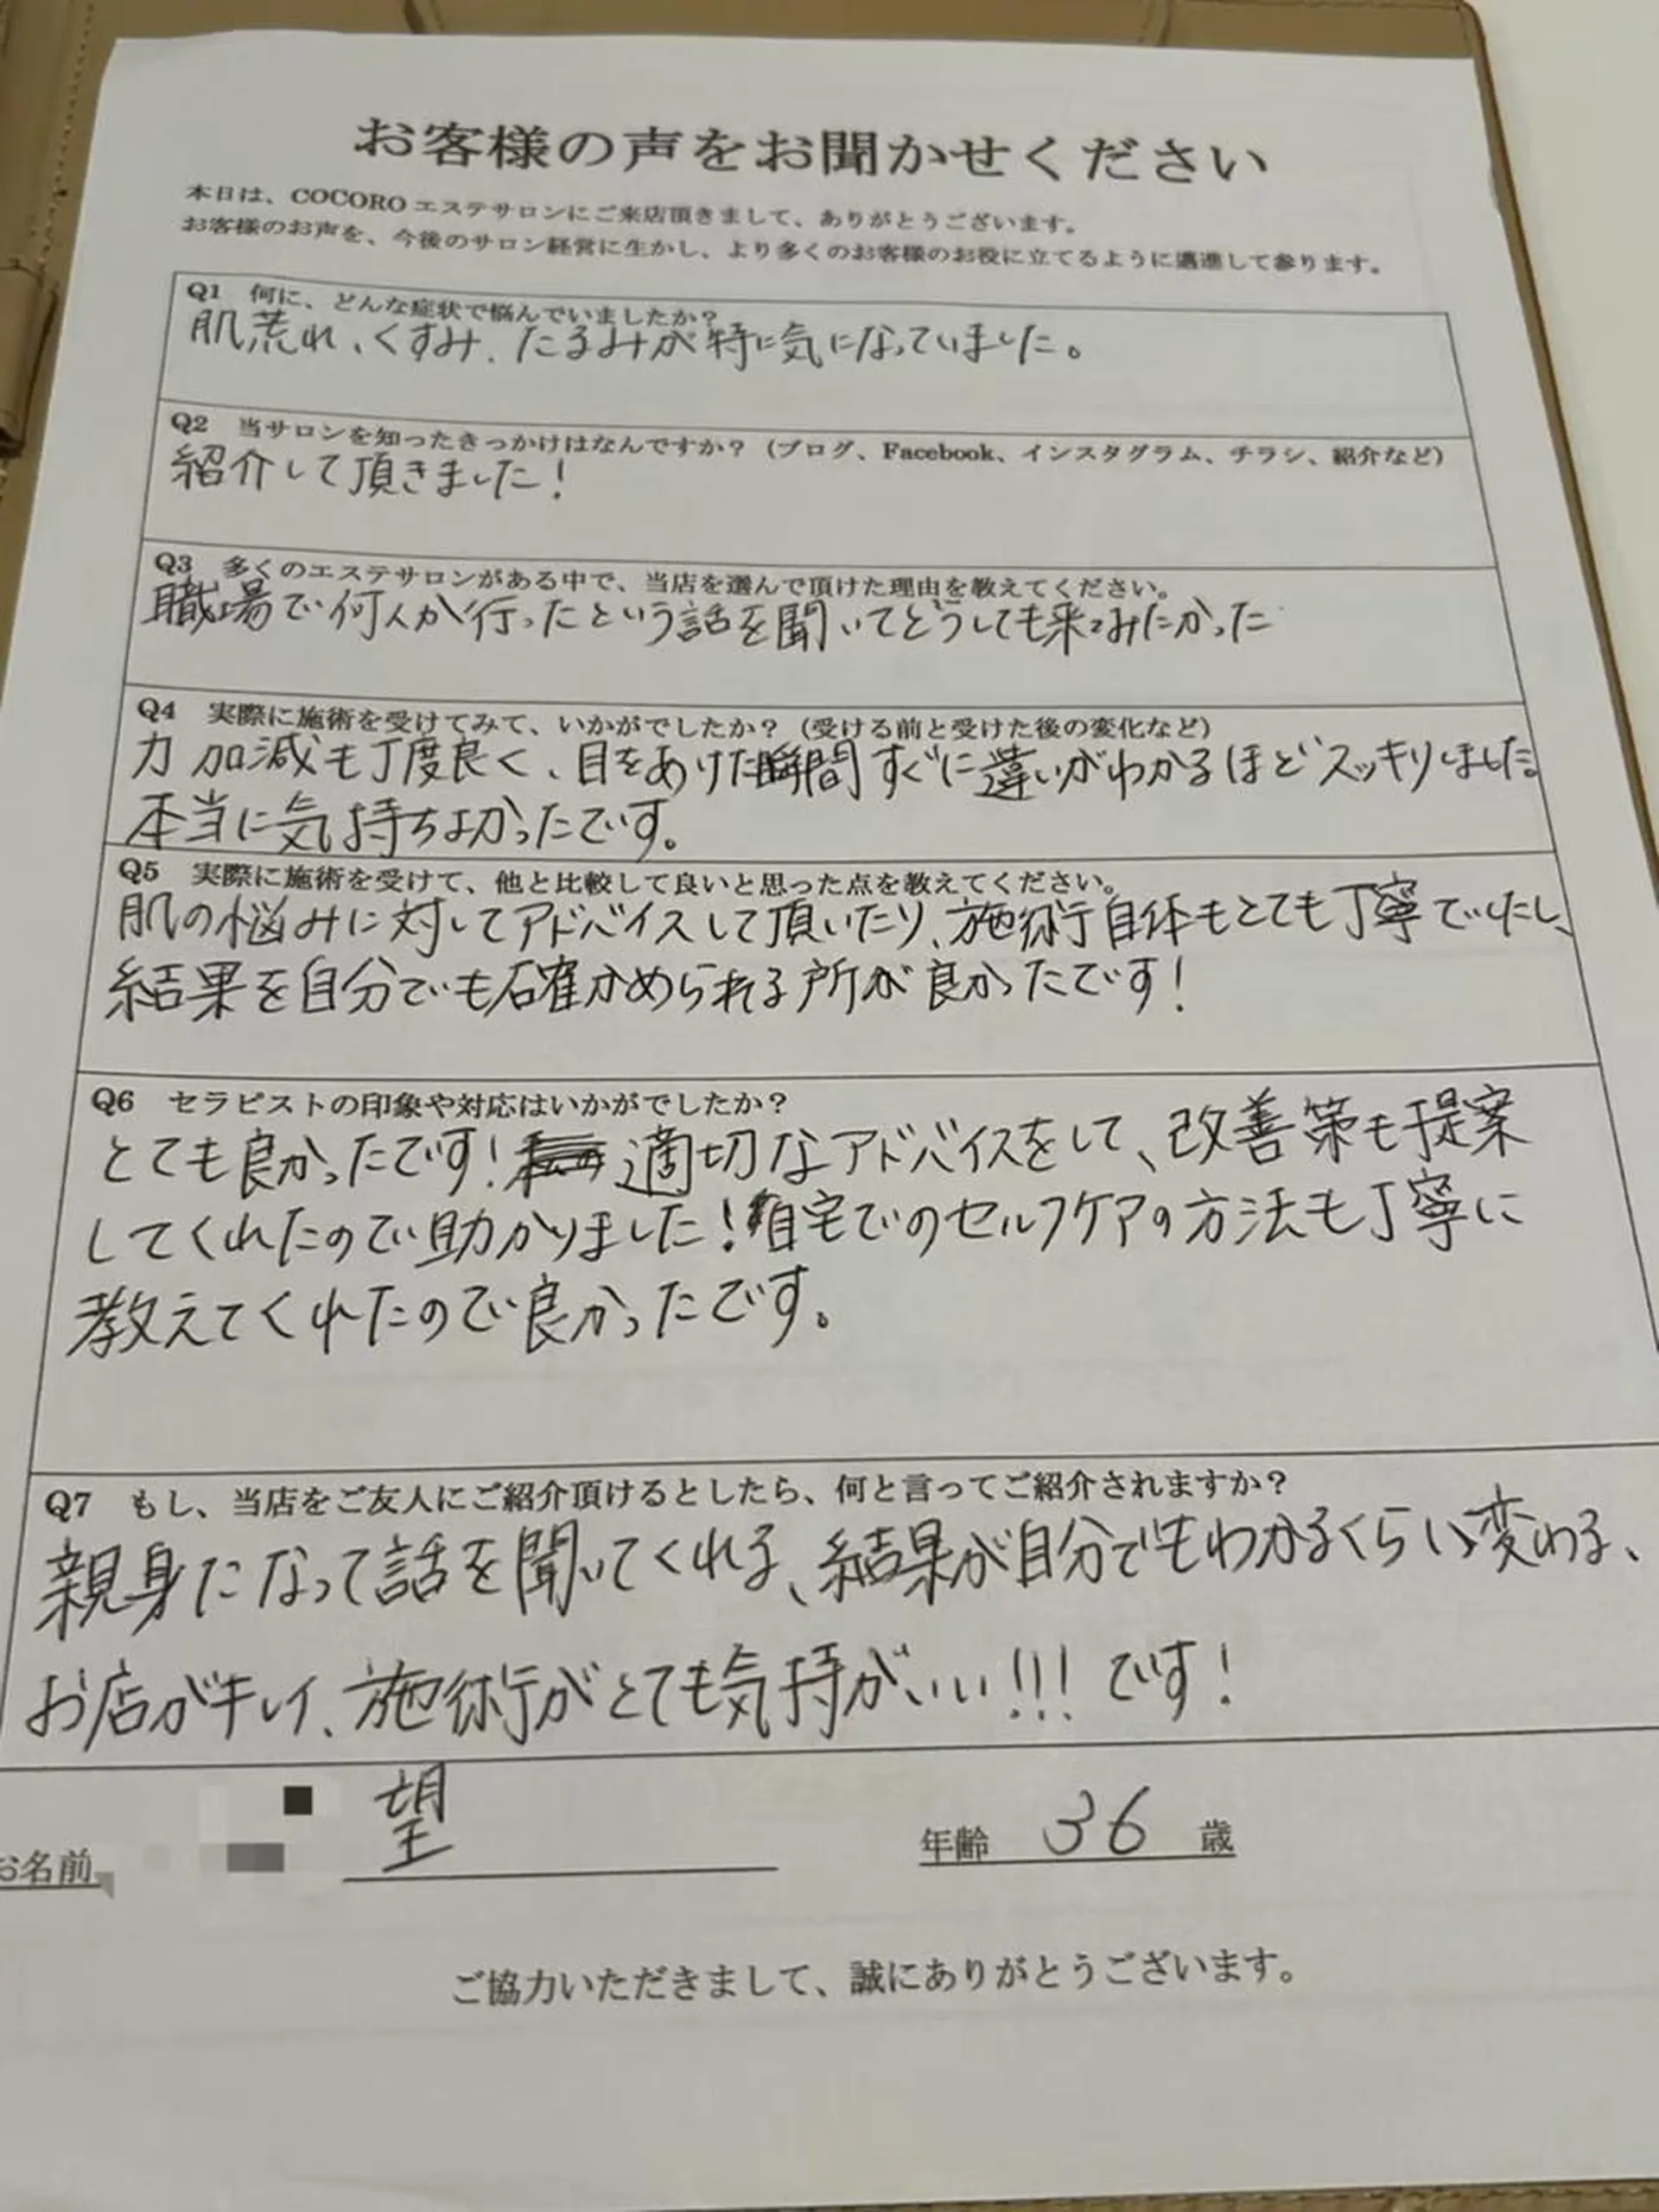 お客様の声をお聞かせください
本日は、COCOROエステサロンにご来店頂きまして、ありがとうございます。
お客様のお声を、今後のサロン経営に生かし、より多くのお客様のお役に立てるように邁進して参ります。
Q1 何に、どんな症状で悩んでいましたか？
肌荒れ、くすみ、たるみが特に気になっていました。
Q2 当サロンを知ったきっかけはなんですか？（ブログ、Facebook、インスタグラム、チラシ、紹介など）
紹介して頂きました！
Q3 多くのエステサロンがある中で、当店を選んで頂けた理由を教えてください。
職場で何人か行ったという話を聞いてどうしても来てみたかった
Q4 実際に施術を受けてみて、いかがでしたか？（受ける前と受けた後の変化など）
力加減も丁度良く、目をあけた瞬間すぐに違いがわかるほどスッキリしました。
本当に気持ちよかったです。
Q5 実際に施術を受けて、他と比較して良いと思った点を教えてください。
肌の悩みに対してアドバイスして頂いたり、施術自体もとても丁寧でしたし、
結果を自分でも確かめられる所が良かったです！
Q6 セラピストの印象や対応はいかがでしたか？
とても良かったです！適切なアドバイスをして、改善策も提案
してくれたので助かりました！自宅でのセルフケアの方法も丁寧に
教えてくれたので良かったです。
Q7 もし、当店をご友人にご紹介頂けるとしたら、何と言ってご紹介されますか？
親身になって話を聞いてくれる、結果が自分でもわかるくらい変わる、
お店がキレイ、施術がとても気持がいい!!!です！
お名前 望 年齢 36 歳
ご協力いただきまして、誠にありがとうございます。